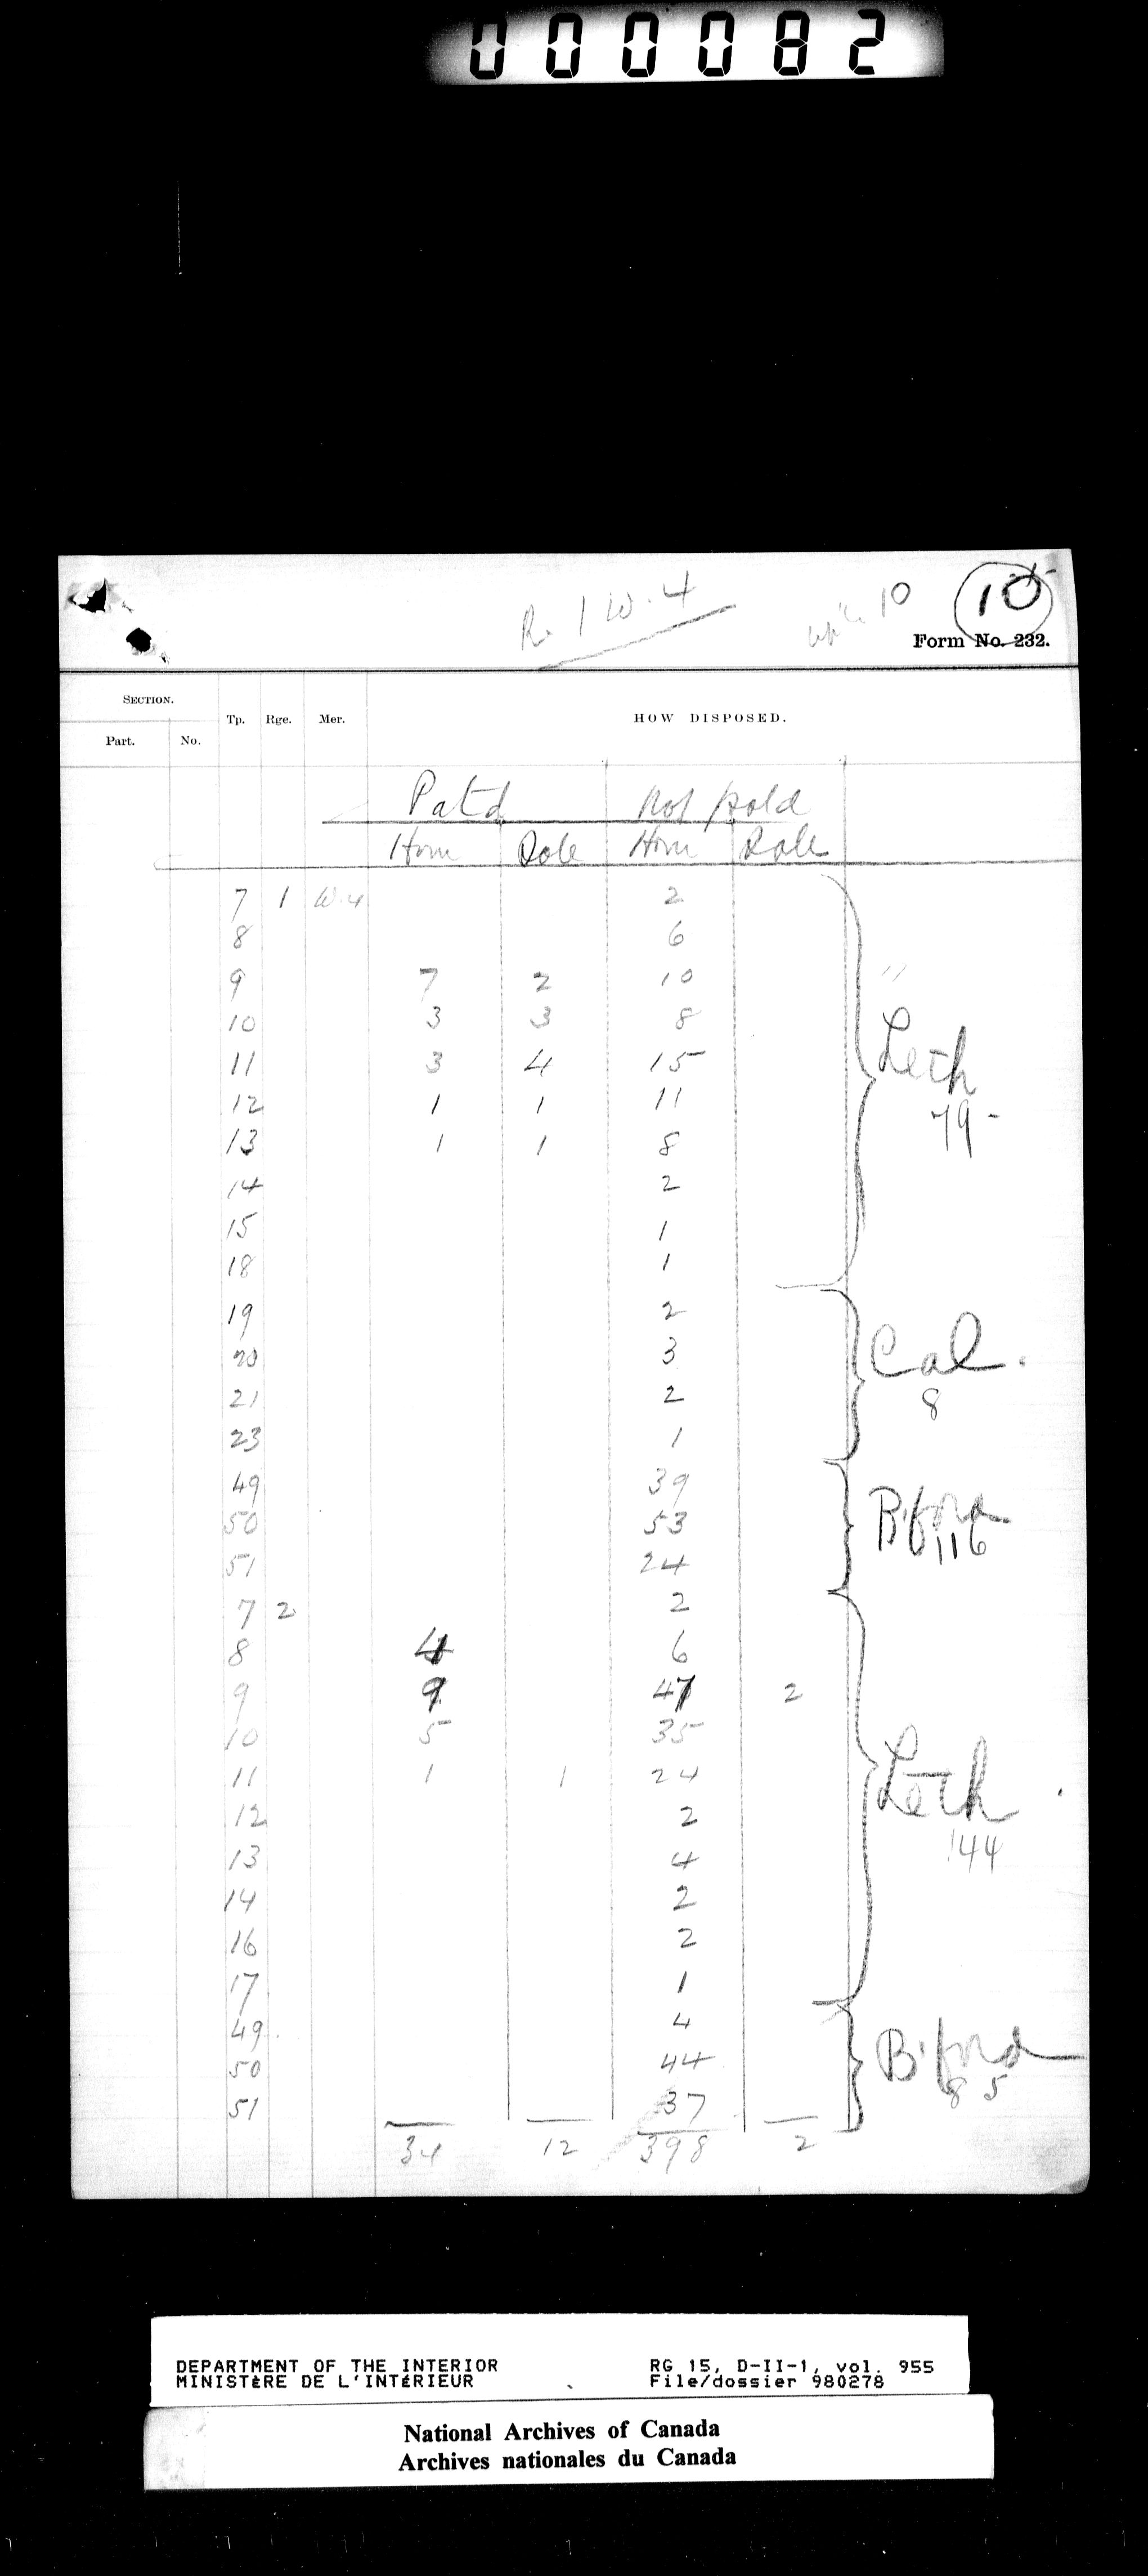 000082
R. 1 W. 4
10
10
Form No. 232.
SECTION.
Tp. Rge. Mer. HOW DISPOSED.
Part. No.
Pat'd Not patd
Hom Sale Hom Sale
7 1 W.4 2
8 6
9 7 2 10
10 3 3 8
11 3 4 15
Leth
12 1 1 11
79-
13 1 1 8
14 2
15 1
18 1
19 2
20 3
Cal.
21 2
8
23 1
49 39
50 53
B'ford
116
51 24
7 2 2
8 4 6
9 9 47 2
10 5 35
11 1 1 24
Leth
12 2
144
13 4
14 2
16 2
17 1
49 4
50 44
B'ford
85
51 37
34 12 398 2
DEPARTMENT OF THE INTERIOR RG 15, D-II-1, vol. 955
MINISTÈRE DE L'INTÉRIEUR File/dossier 980278
National Archives of Canada
Archives nationales du Canada